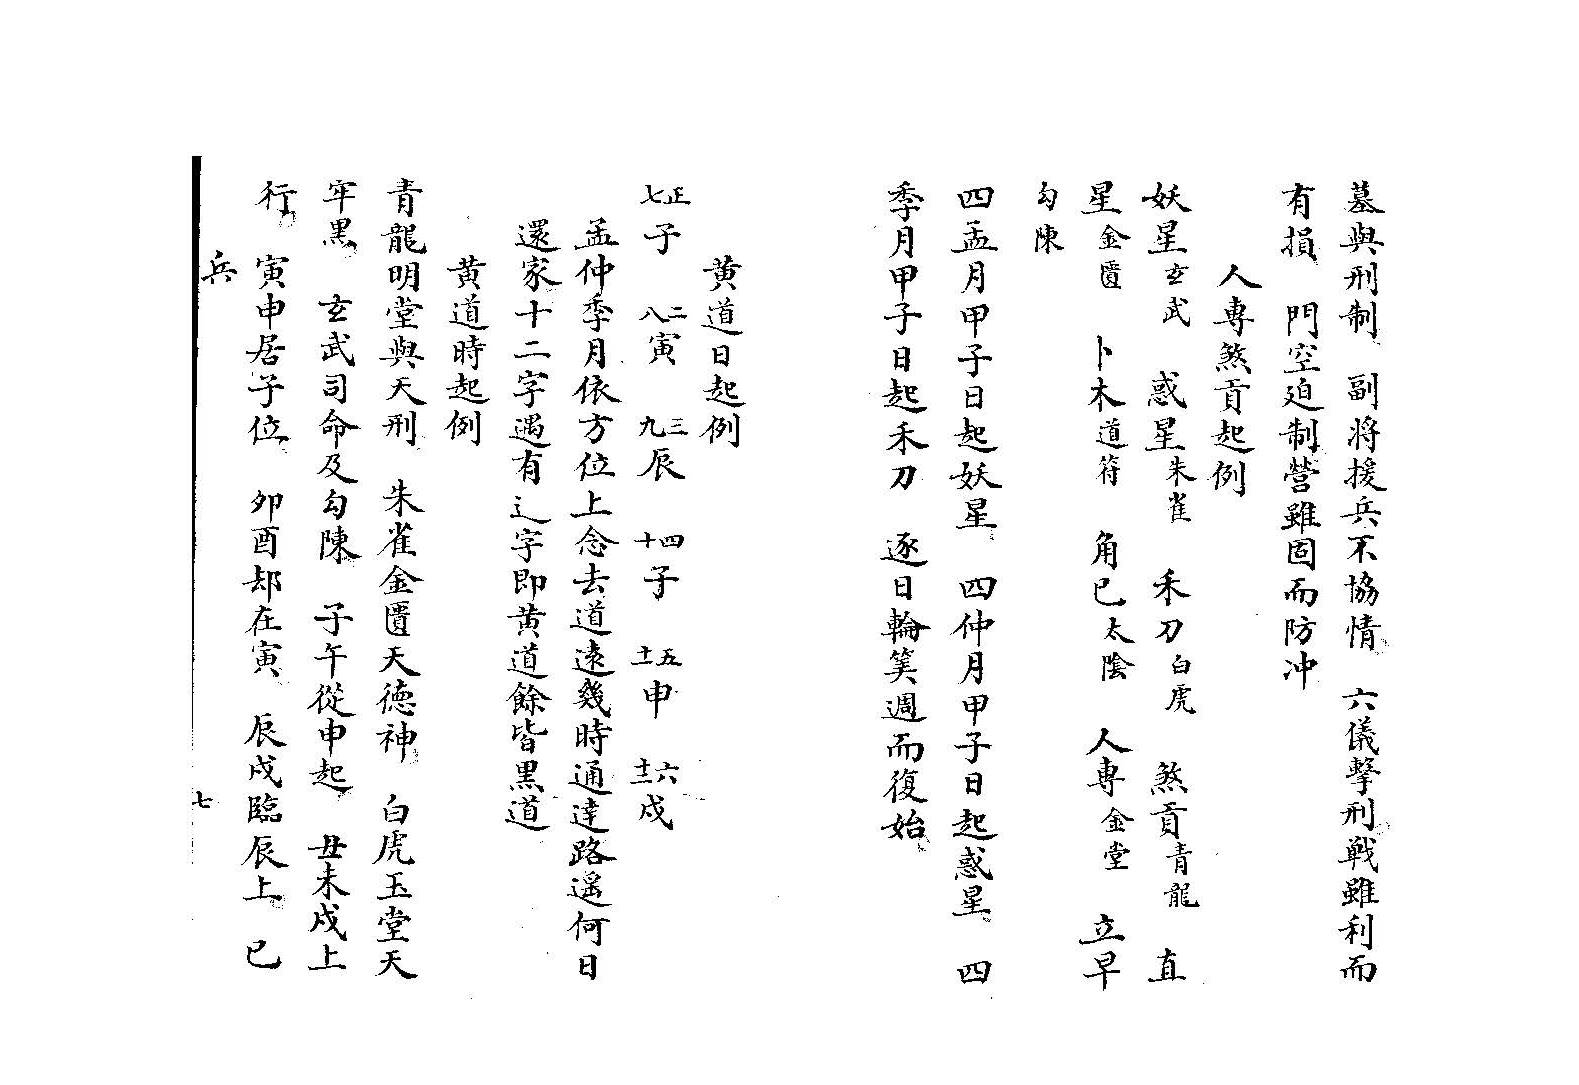 墓與刑制　副將援兵不協情　六儀擊刑戰雖利而
有損　門空迫制營雖固而防冲
人專煞貢起例
妖星玄武　惑星朱雀　禾刀白虎　煞貢青龍　直
星金匱　卜木道符　角巳太陰　人專金堂　立早
勾陳
四孟月甲子日起妖星　四仲月甲子日起惑星　四
季月甲子日起禾刀　逐日輪筭週而復始
黃道日起例
正七子　二八寅　三九辰　四十子　五十一申　六十二戍
孟仲季月依方位上念去道遠幾時通達路遥何日
還家十二字遇有辶字即黃道餘皆黑道
黃道時起例
青龍明堂與天刑　朱雀金匱天德神　白虎玉堂天
牢黑　玄武司命及勾陳　子午從申起　丑未戍上
行　寅申居子位　夘酉却在寅　辰戍臨辰上　巳
兵　七